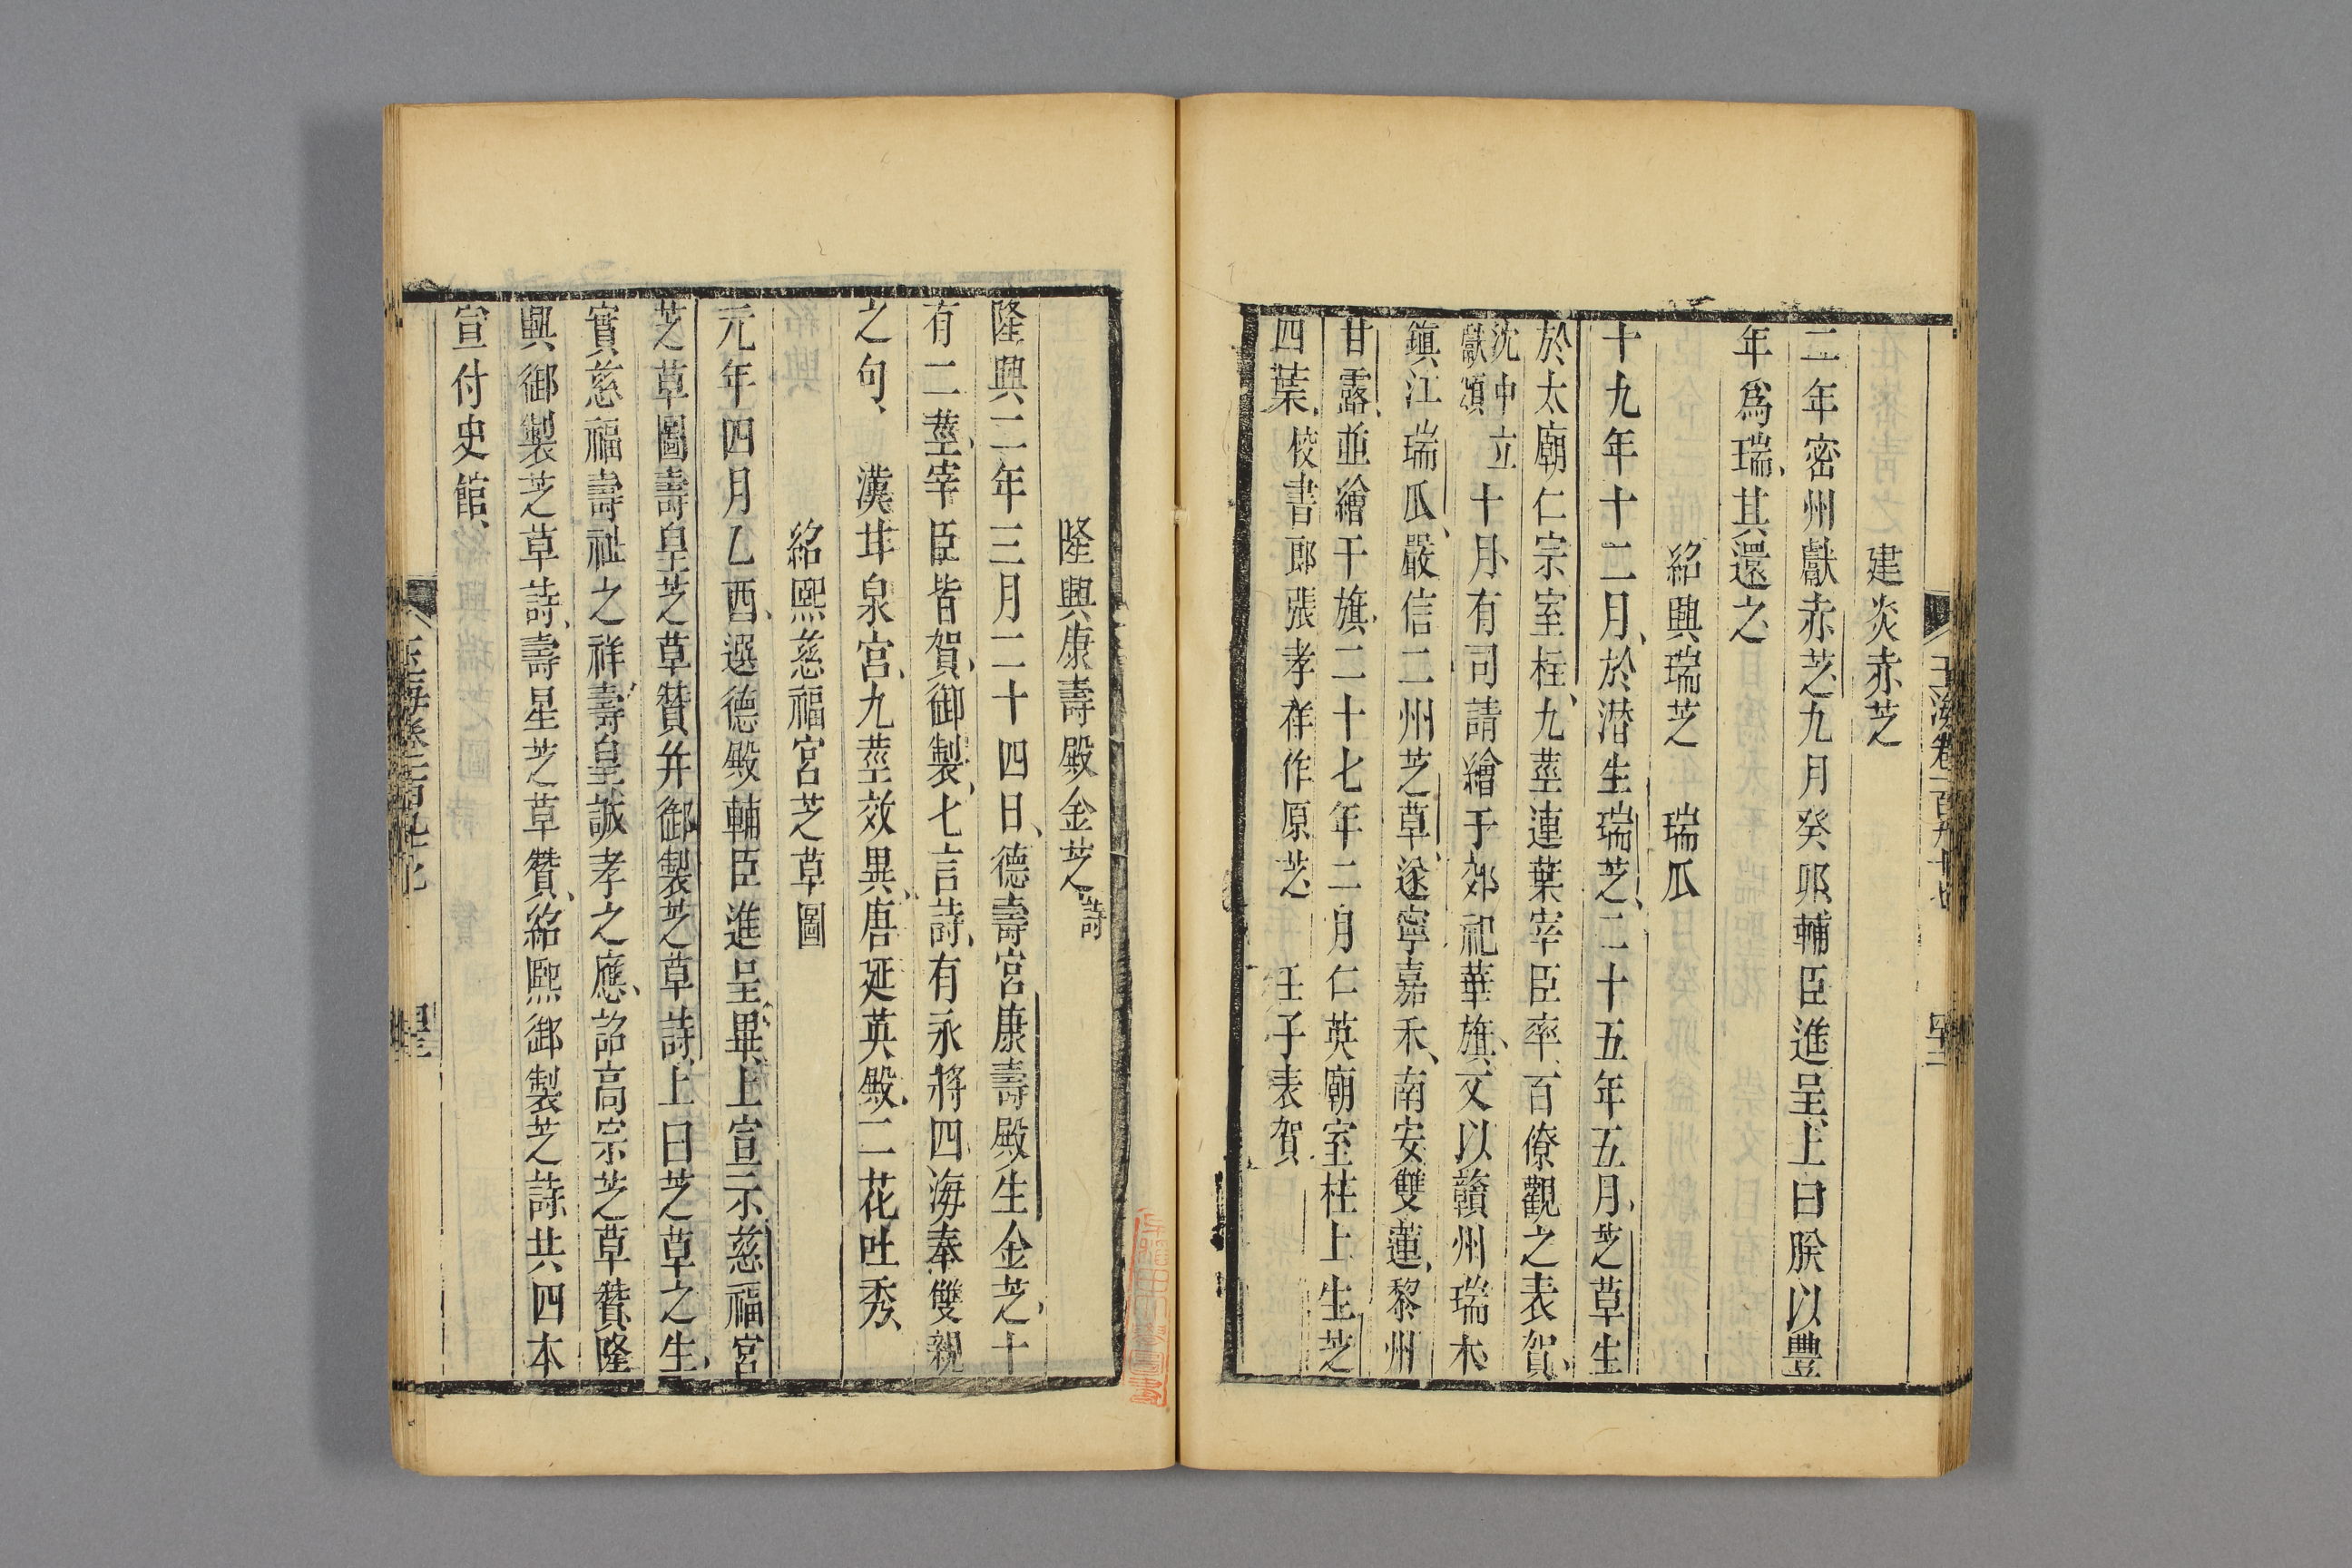 玉海卷一百九十七
建炎赤芝
二年密州獻赤芝九月癸卯輔臣進呈上曰朕以豐
年爲瑞其還之
紹興瑞芝 瑞瓜
十九年十二月於潜生瑞芝二十五年五月芝草生
於太廟仁宗室柱九莖連葉宰臣率百僚觀之表賀
沈中立
獻頌
十月有司請繪于郊祀華旗又以贛州瑞木
鎭江瑞瓜嚴信二州芝草遂寧嘉禾南安雙蓮黎州
甘露並繪于旗二十七年二月仁英廟室柱上生芝
四葉校書郎張孝祥作原芝 任子表賀
隆興康壽殿金芝詩
隆興二年三月二十四日德壽宮康壽殿生金芝十
有二莖宰臣皆賀御製七言詩有永將四海奉雙親
之句 漢甘泉宮九莖效異唐延英殿二花吐秀
紹熙慈福宮芝草圖
元年四月乙酉選德殿輔臣進呈畢上宣示慈福宮
芝草圖壽皇芝草贊并御製芝草詩上曰芝草之生
實慈福壽祉之祥壽皇誠孝之應詔高宗芝草贊隆
興御製芝草詩壽星芝草贊紹熙御製芝詩共四本
宣付史館